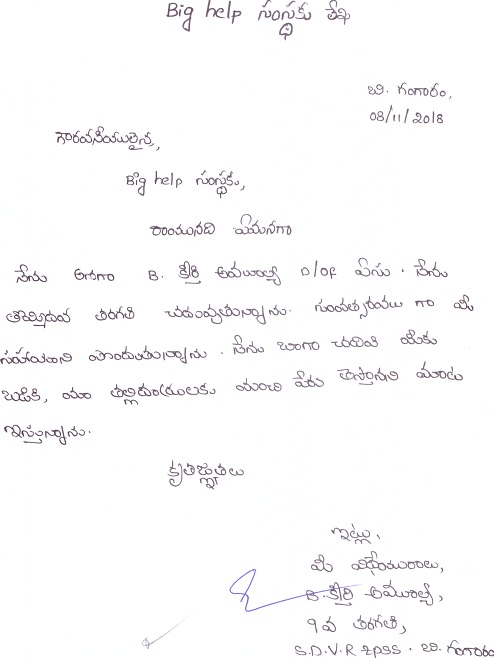 Big help సంస్థకు లేఖ
బి. గంగారం,
08/11/2018
గౌరవనీయులైన,
Big help సంస్థకు,
రాయునది ఏమనగా
నేను అనగా B. కీర్తి అమూల్య D/OF ఏసు. నేను
తొమ్మిదవ తరగతి చదువుతున్నాను. సంవత్సరములు గా మీ
సహాయంని పొందుతున్నాను. నేను బాగా చదివి మీకు
బడికి, మా తల్లిదండ్రులకు మంచి పేరు తెస్తానని మాట
ఇస్తున్నాను.
కృతజ్ఞతలు
ఇట్లు,
మీ విధేయురాలు,
B. కీర్తి అమూల్య,
9వ తరగతి,
S.D.V.R ZPSS. బి. గంగారం